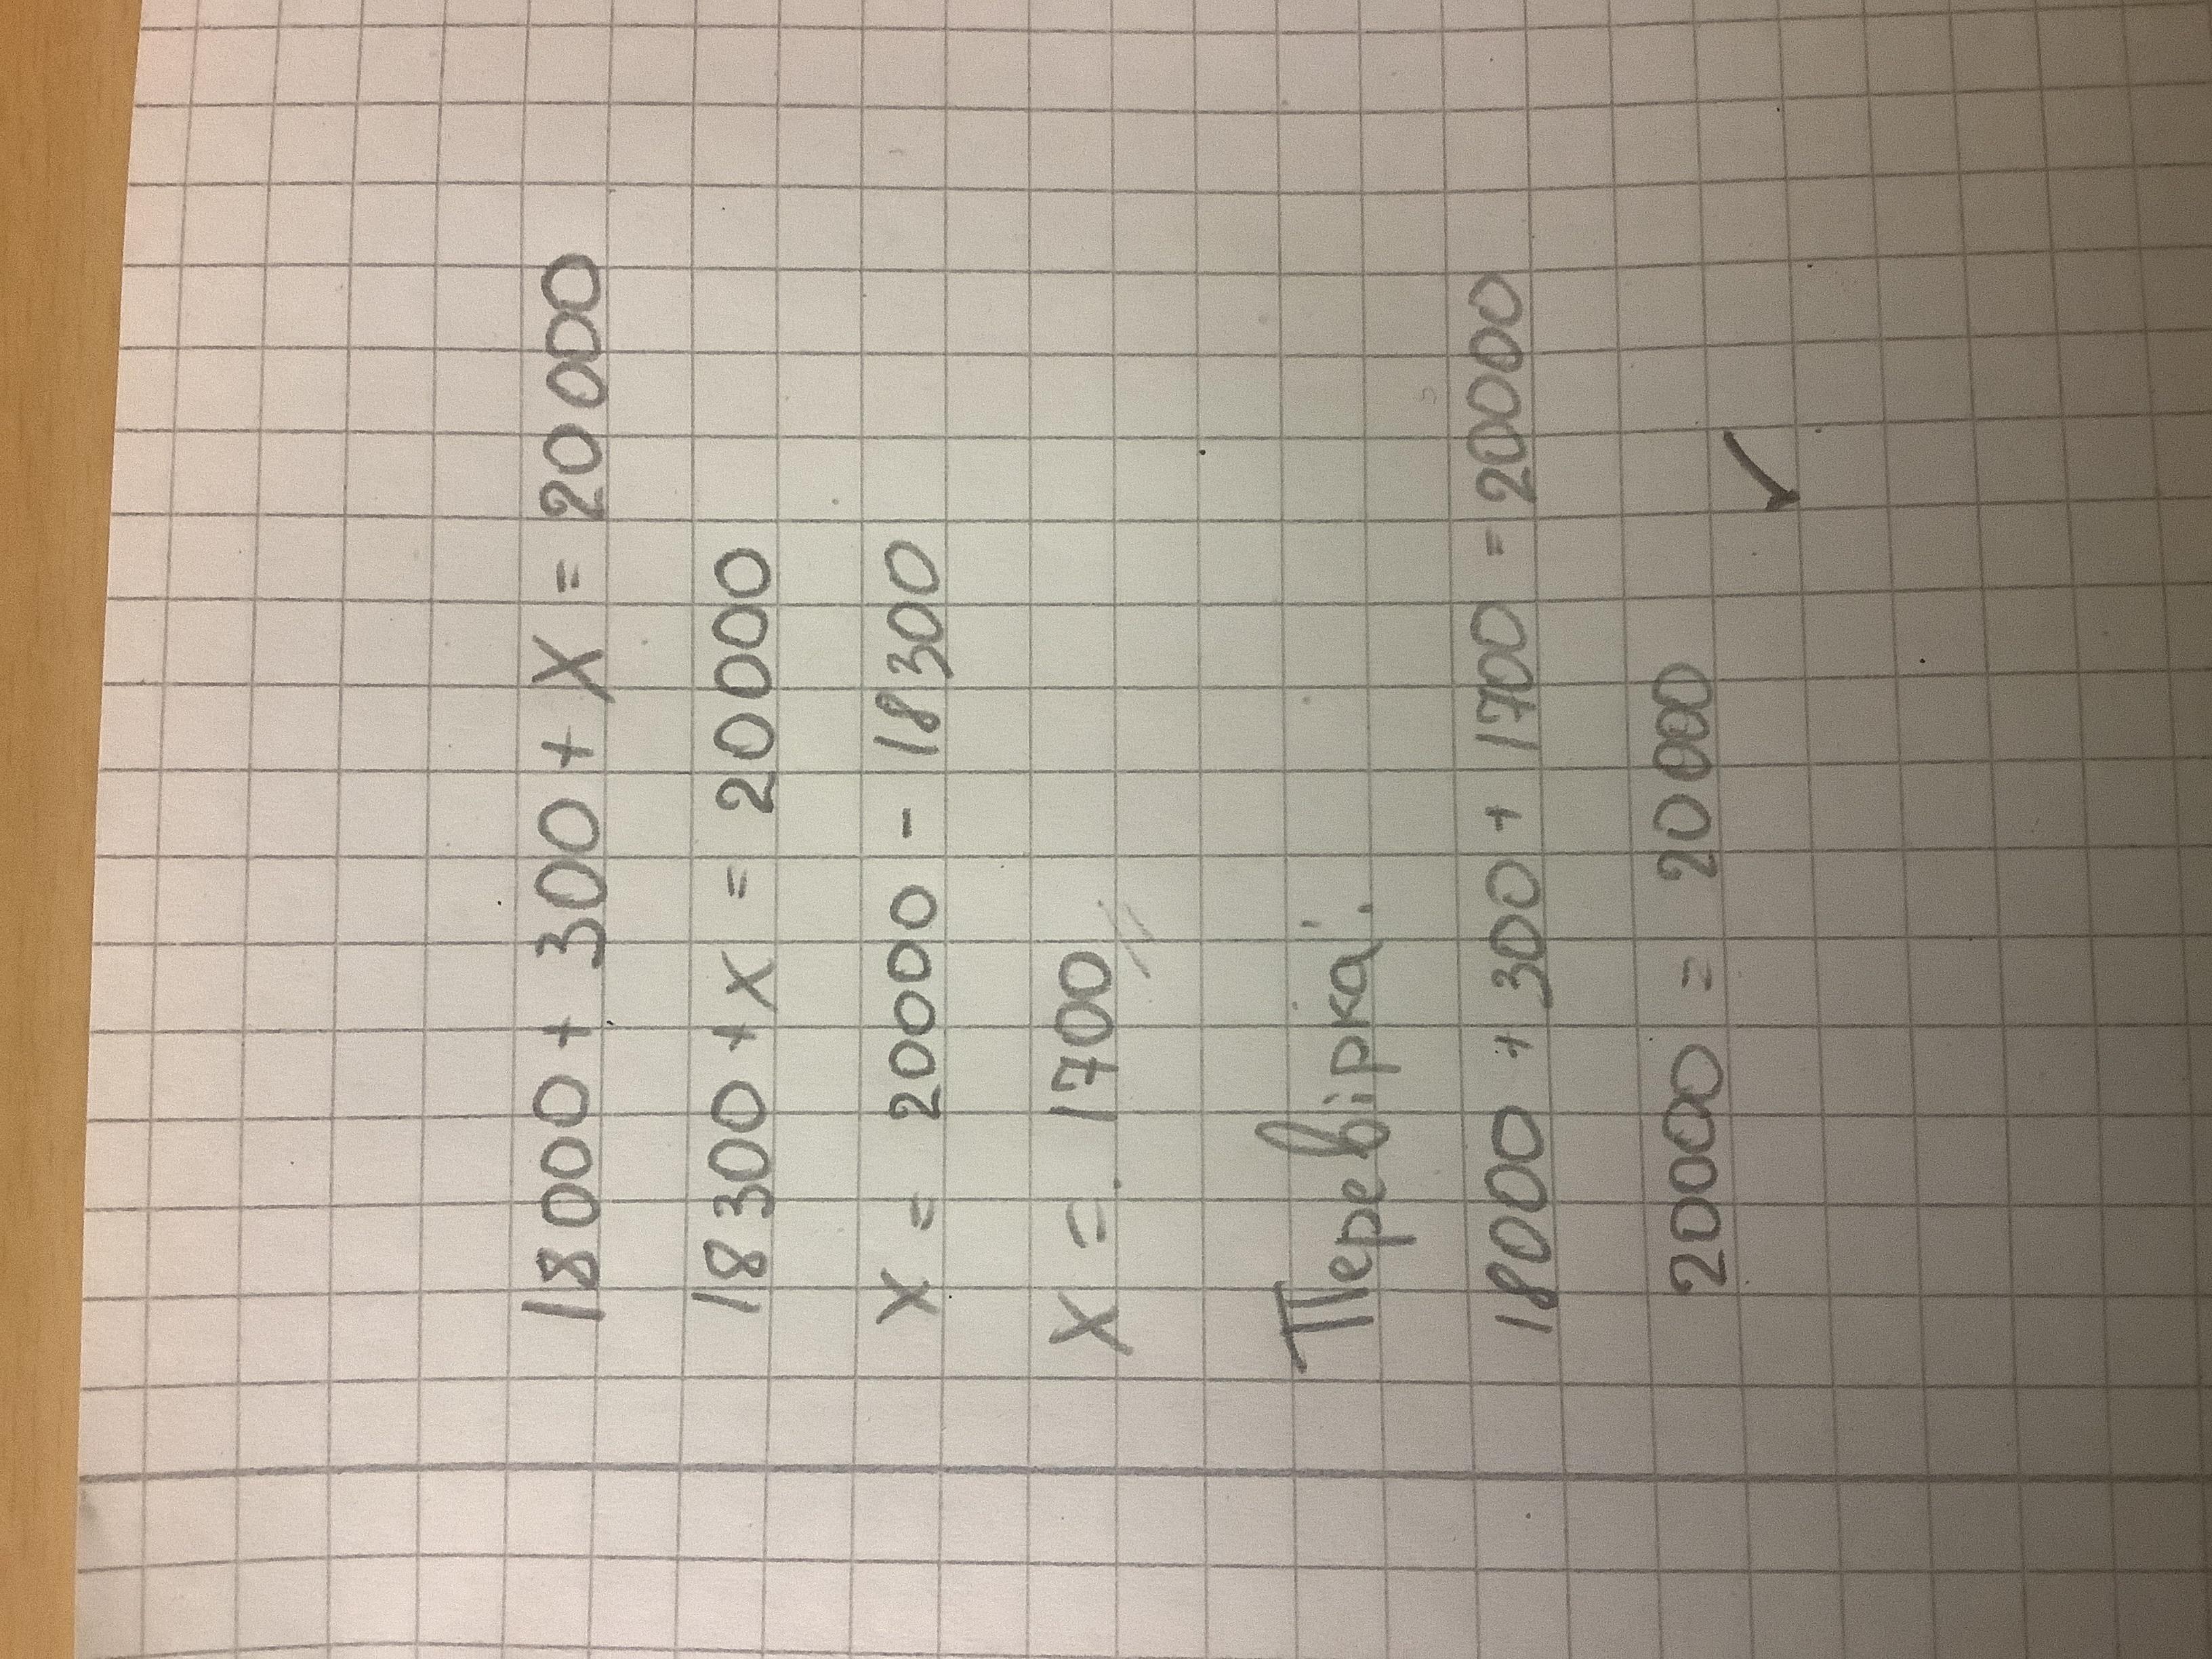 18000 + 300 + X = 20000
18300 + X = 20000
X = 20000 - 18300
X = 1700
Перевірка:
18000 + 300 + 1700 = 20000
20000 = 20000